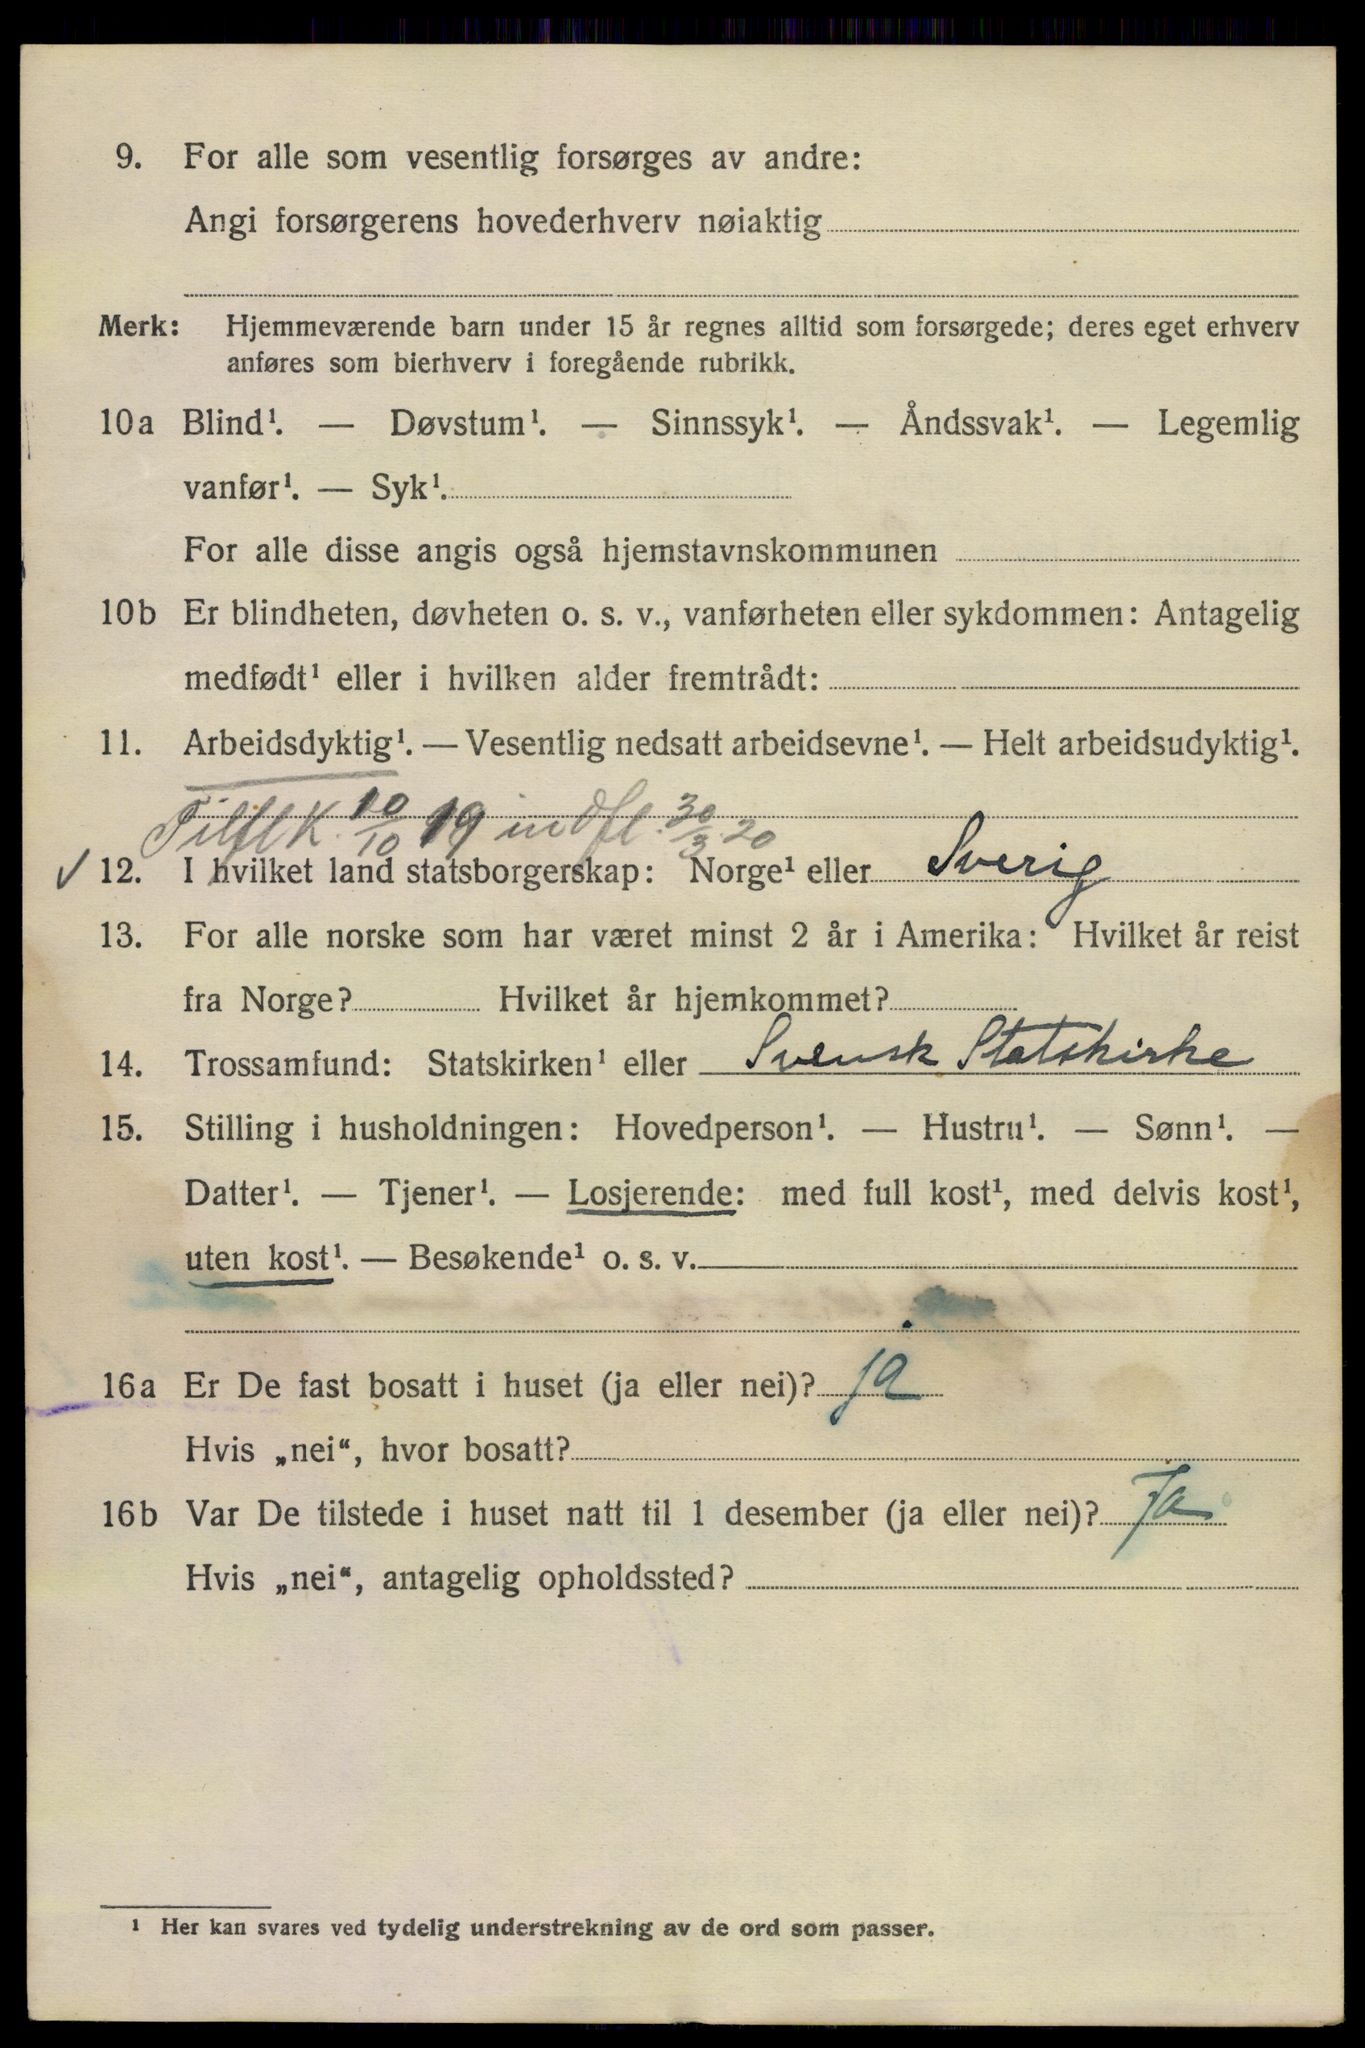 9. For alle som vesentlig forsørges av andre:
Angi forsørgerens hovederhverv nøiaktig
Merk: Hjemmeværende barn under 15 år regnes alltid som forsørgede; deres eget erhverv
anføres som bierhverv i foregående rubrikk.
10a Blind¹. — Døvstum¹. — Sinnssyk¹. — Åndssvak¹. — Legemlig
vanfør¹. — Syk¹.
For alle disse angis også hjemstavnskommunen
10b Er blindheten, døvheten o. s. v., vanførheten eller sykdommen: Antagelig
medfødt¹ eller i hvilken alder fremtrådt:
11. Arbeidsdyktig¹. — Vesentlig nedsatt arbeidsevne¹. — Helt arbeidsudyktig¹.
10/10 19 30/3 20
✓ 12. I hvilket land statsborgerskap: Norge¹ eller Sverig
13. For alle norske som har været minst 2 år i Amerika: Hvilket år reist
fra Norge? Hvilket år hjemkommet?
14. Trossamfund: Statskirken¹ eller Svensk Statskirke
15. Stilling i husholdningen: Hovedperson¹. — Hustru¹. — Sønn¹. —
Datter¹. — Tjener¹. — Losjerende: med full kost¹, med delvis kost¹,
uten kost¹. — Besøkende¹ o. s. v.
16a Er De fast bosatt i huset (ja eller nei)? ja
Hvis „nei“, hvor bosatt?
16b Var De tilstede i huset natt til 1 desember (ja eller nei)? Ja
Hvis „nei“, antagelig opholdssted?
¹ Her kan svares ved tydelig understrekning av de ord som passer.